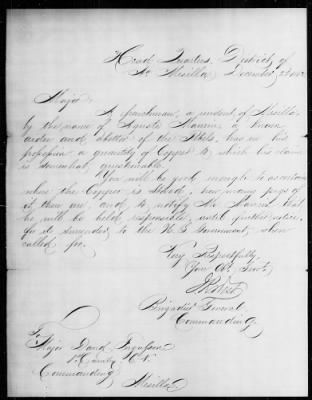 Head Quarters, District of
Mesilla, December 2d 1862
Major:
A frenchman, a resident of Mesilla
by the name of Agusto Maurin, a known
and abettor of the Rebels, has in his
possession a quantity of Copper to which his claim
is somewhat questionable.
You will be good enough to ascertain
where this Copper is stored, how many pigs of
it there are, and to notify Mr Maurin that
he will be held responsible, until further notice,
for its surrender to the U.S. Government, when
called for.
Very Respectfully,
Your Ob. Servt.
J R West
Brigadier General
Commanding.
To
Major David Fergusson
1st Cavalry C.V.
Commanding
Mesilla